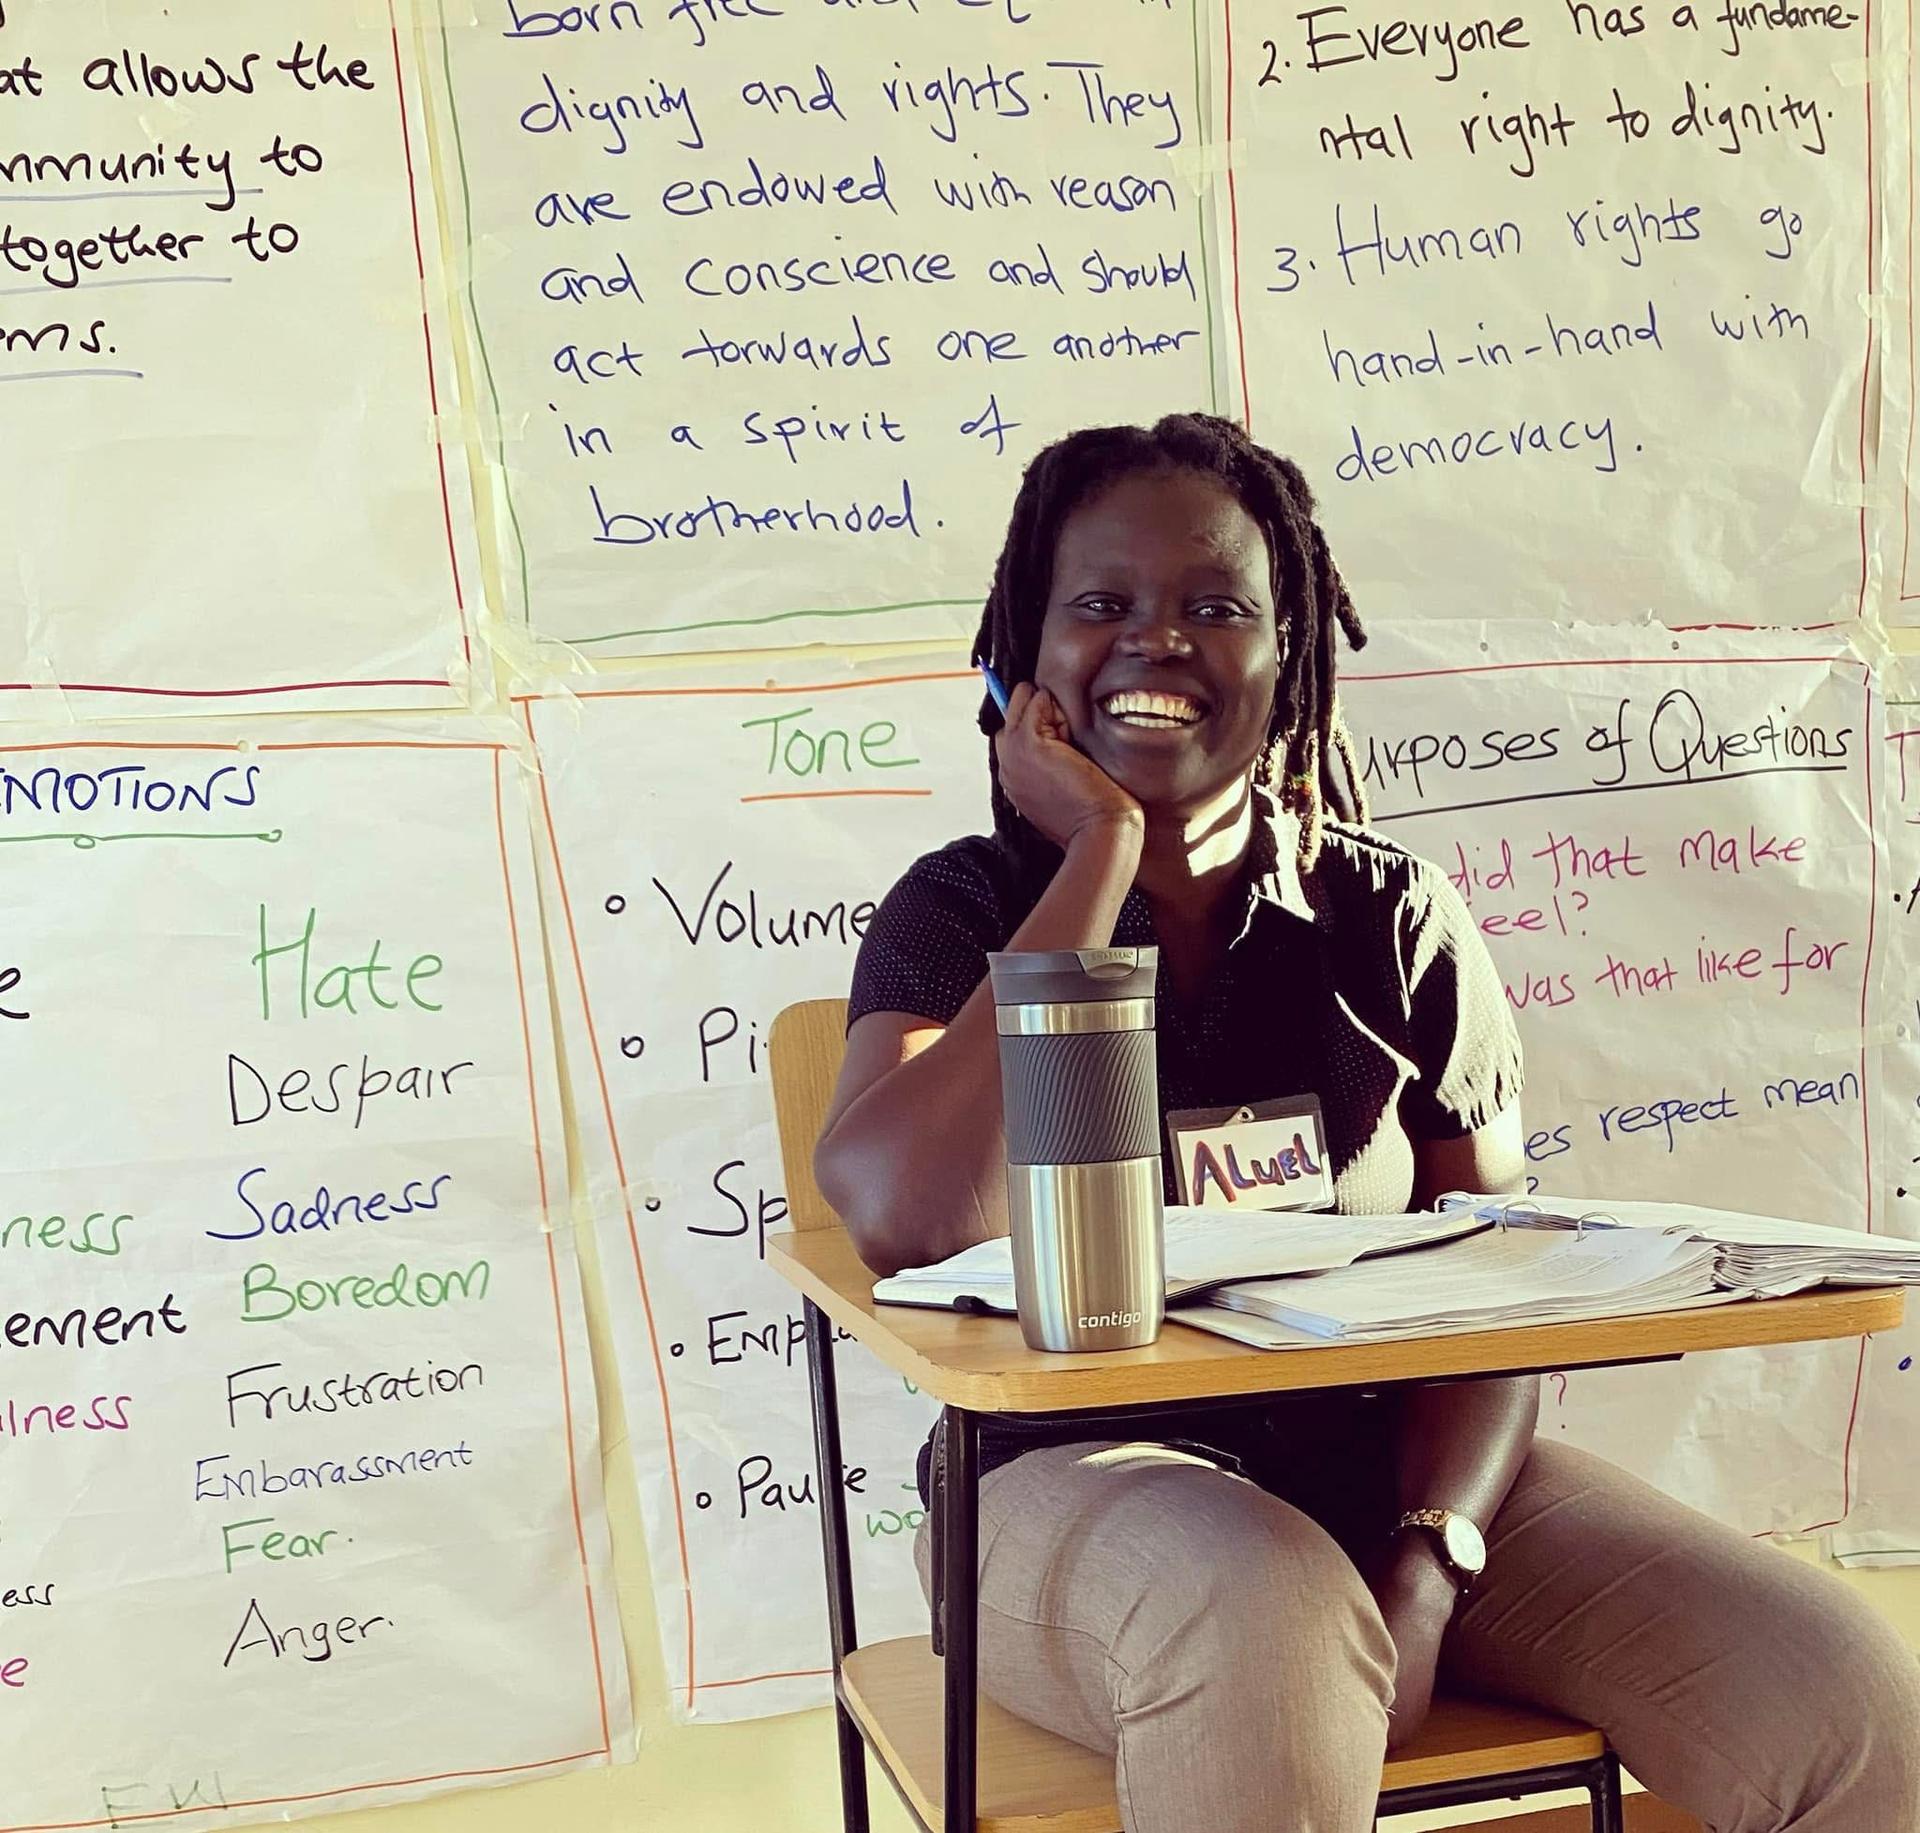 at allows the
mmunity to
together to
ms.
born free and
dignity and rights. They
are endowed with reason
and conscience and should
act torwards one another
in a spirit of
brotherhood.
2. Everyone has a fundame-
ntal right to dignity.
3. Human rights go
hand-in-hand with
democracy.
MOTIONS
Hate
Despair
Sadness
ness
Boredom
ement
Frustration
lness
Embarassment
Fear.
ess
Anger.
e
Tone
Volume
Pi
Sp
Emp
Pause
wo
urposes of Questions
did that make
eel?
was that like for
es respect mean
?
?
ALUEL
contigo